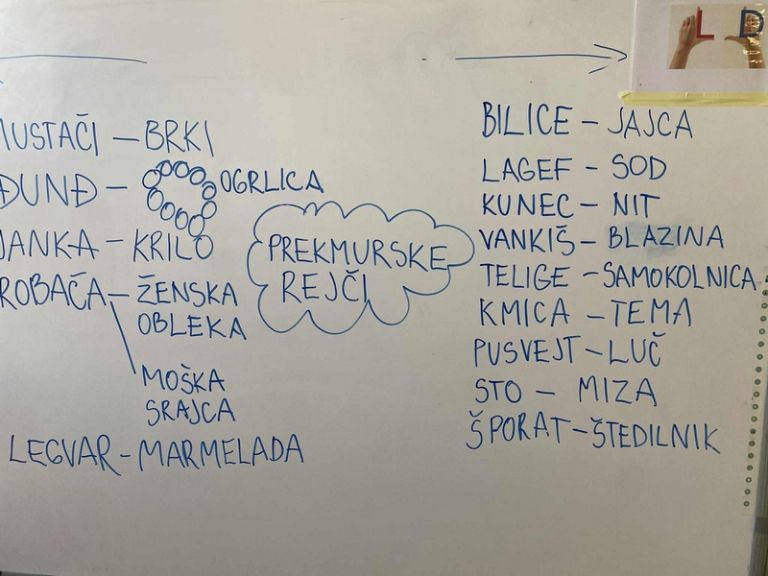 L D
IUSTAČI – BRKI
ĐUNĐ – OGRLICA
JANKA – KRILO
ROBAČA – ŽENSKA
OBLEKA
MOŠKA
SRAJCA
LEGVAR – MARMELADA
PREKMURSKE
REJČI
BILICE – JAJCA
LAGEF – SOD
KUNEC – NIT
VANKIŠ – BLAZINA
TELIGE – SAMOKOLNICA
KMICA – TEMA
PUSVEJT – LUČ
STO – MIZA
ŠPORAT – ŠTEDILNIK